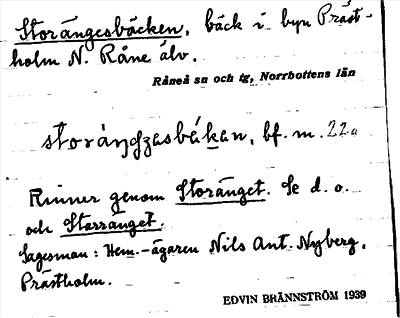 Storängesbäcken, bäck i byn Präst-
holm N. Råne älv.
Råneå sn och tg, Norrbottens län
bf. m. 22a
Rinner genom Storänget. Se d. o.
och Starränget.
Sagesman: Hem.-ägaren Nils Ant. Nyberg,
Prästholm.
EDVIN BRÄNNSTRÖM 1939